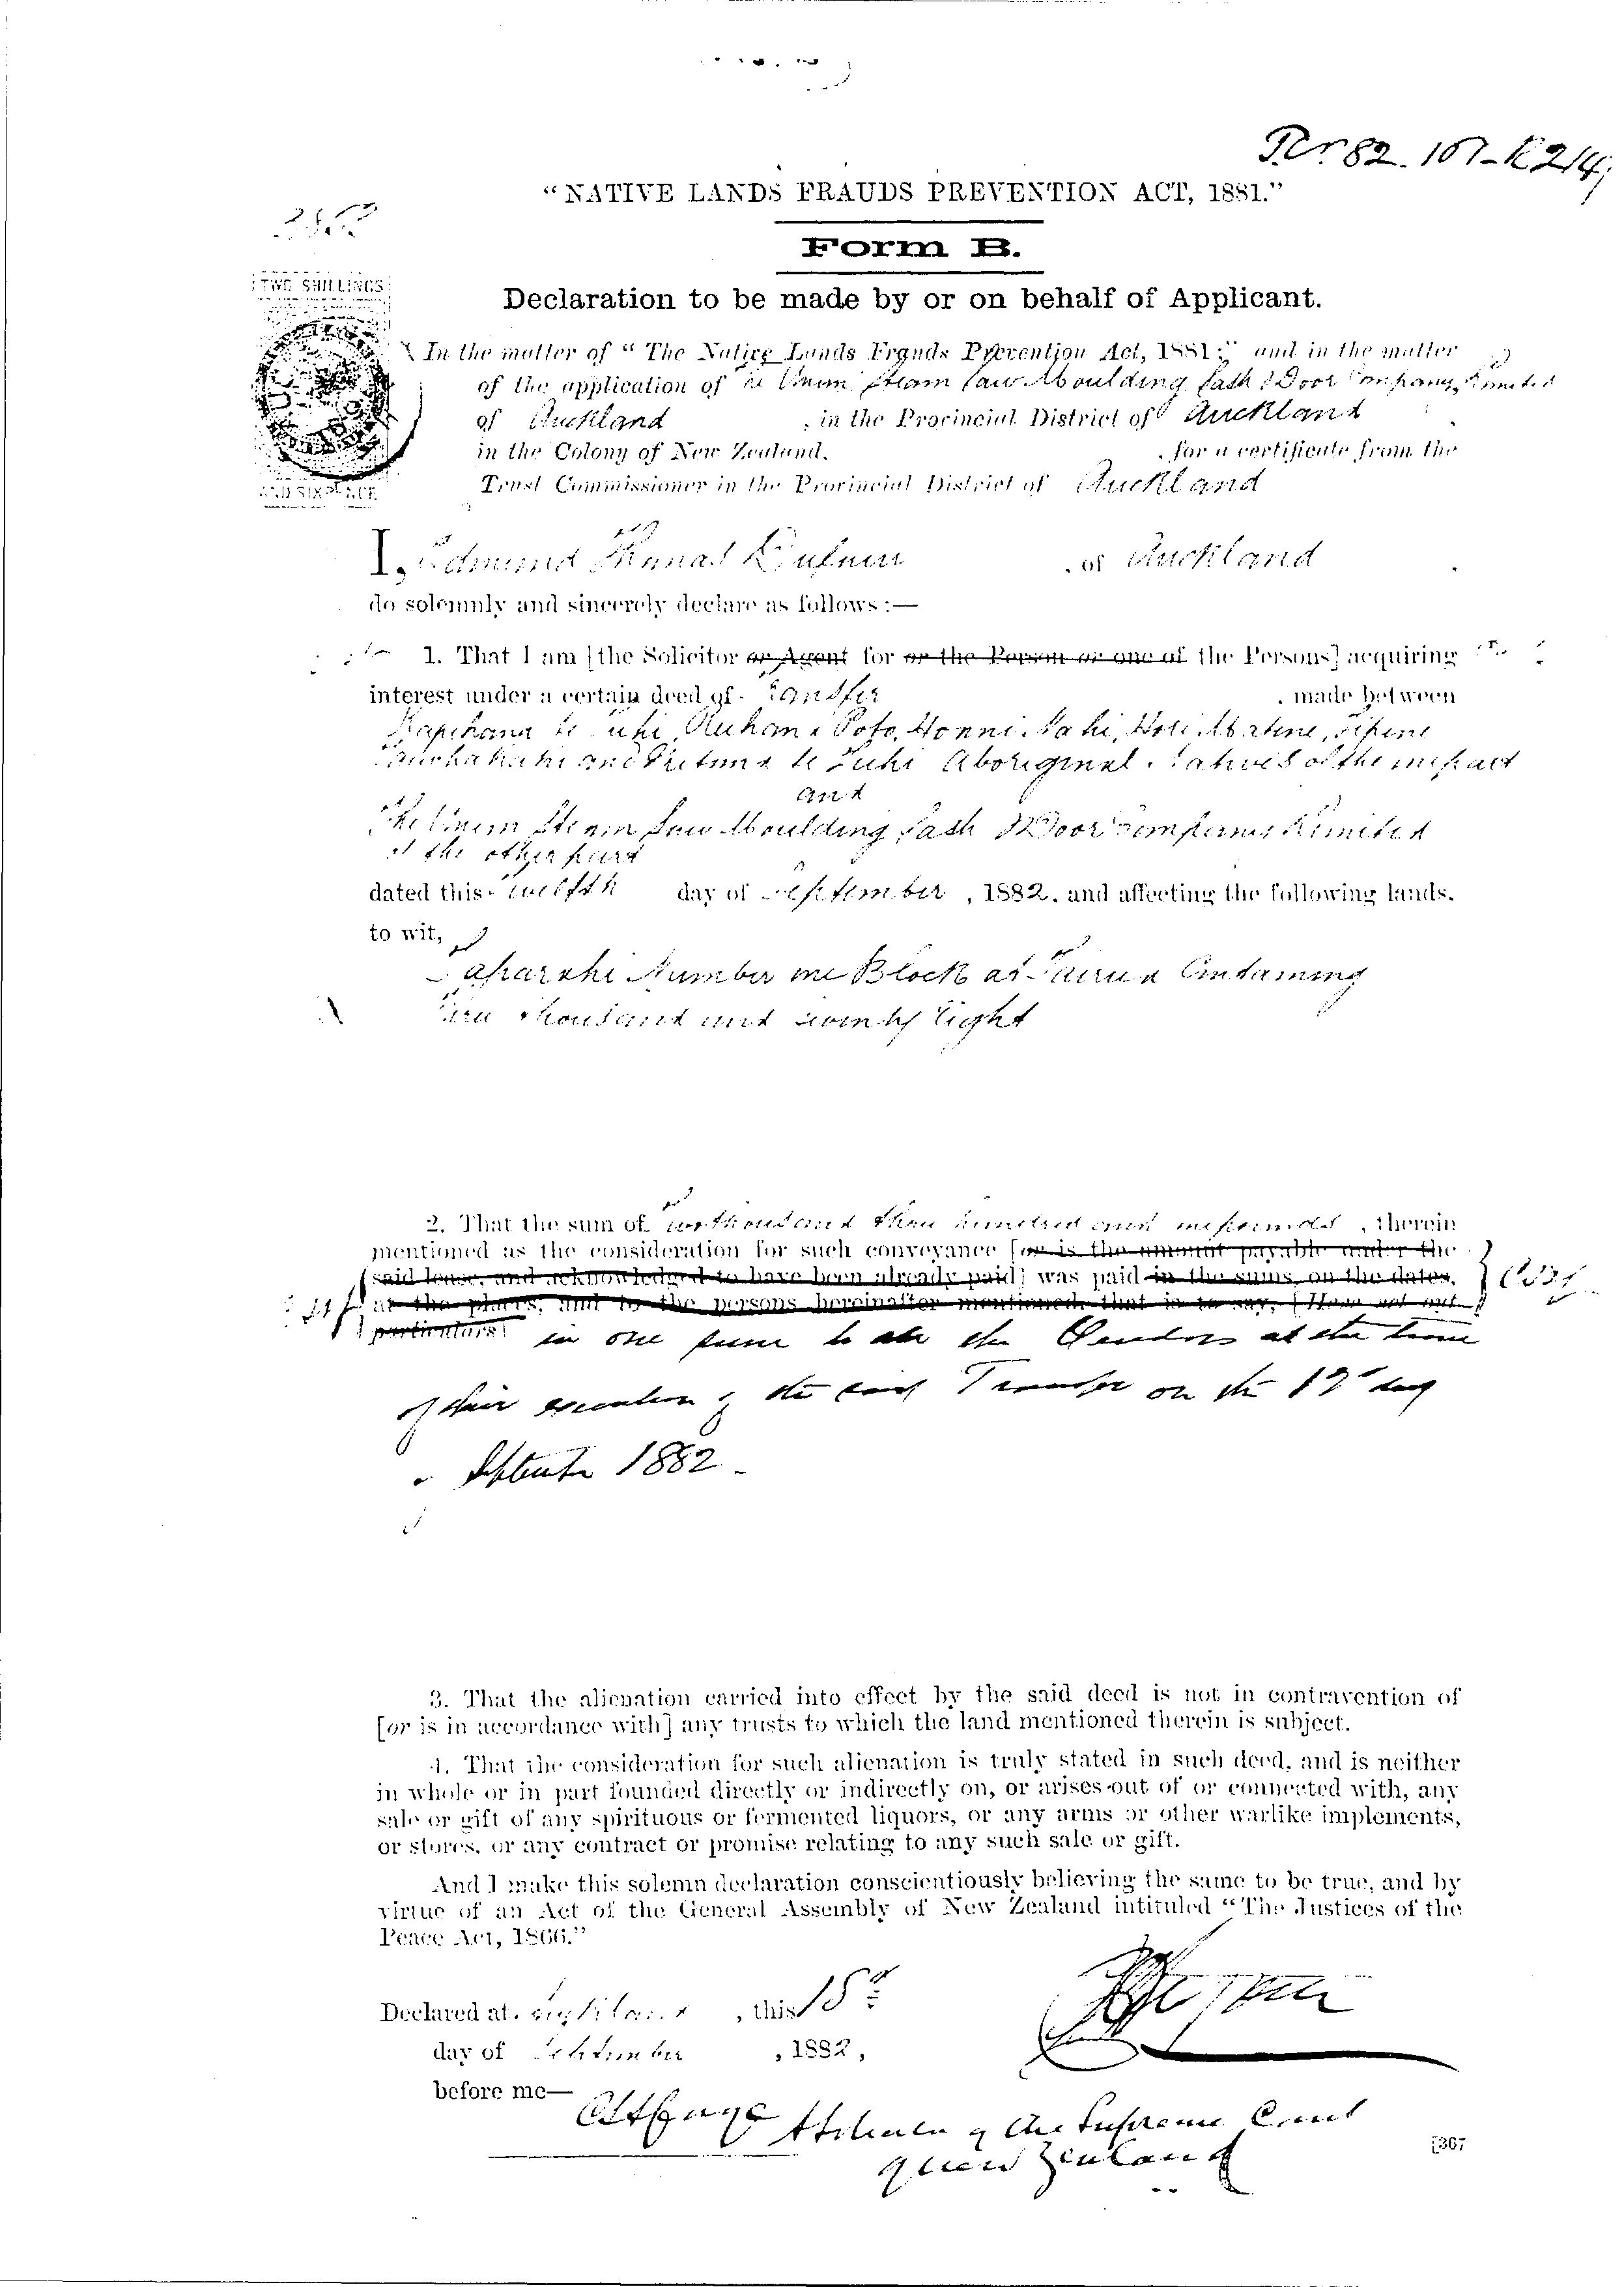 Tr. 82. 107-K214
"NATIVE LANDS FRAUDS PREVENTION ACT, 1881."
Form B.
TWO SHILLINGS
AND SIXPENCE
Declaration to be made by or on behalf of Applicant.
In the matter of "The Native Lands Frauds Prevention Act, 1881;" and in the matter
of the application of The Union Steam Saw Moulding Sash & Door Company Limited
of Auckland, in the Provincial District of Auckland
in the Colony of New Zealand, for a certificate from the
Trust Commissioner in the Provincial District of Auckland
I, Edmund Thomas Dufaur, of Auckland
do solemnly and sincerely declare as follows:—
1. That I am [the Solicitor or Agent for or the Person or one of the Persons] acquiring
interest under a certain deed of Transfer made between
Hori Matene,
Aboriginal Natives of the one part
and
The Union Steam Saw Moulding Sash & Door Company Limited
of the other part
dated this twelfth day of September, 1882, and affecting the following lands,
to wit,
Number one Block at Tairua Containing
thousand and eight
2. That the sum of two thousand three hundred and pounds, therein
mentioned as the consideration for such conveyance [or is the amount payable under the
said lease, and acknowledged to have been already paid] was paid in the sums, on the dates,
at the places, and to the persons hereinafter mentioned, that is to say, [Here set out
particulars] in one sum to all the Vendors at the time
of their execution of the said Transfer on the 12th day
of September 1882
3. That the alienation carried into effect by the said deed is not in contravention of
[or is in accordance with] any trusts to which the land mentioned therein is subject.
4. That the consideration for such alienation is truly stated in such deed, and is neither
in whole or in part founded directly or indirectly on, or arises out of or connected with, any
sale or gift of any spirituous or fermented liquors, or any arms or other warlike implements,
or stores, or any contract or promise relating to any such sale or gift.
And I make this solemn declaration conscientiously believing the same to be true, and by
virtue of an Act of the General Assembly of New Zealand intituled "The Justices of the
Peace Act, 1866."
Declared at Auckland, this 15th
day of September, 1882,
before me—
A Solicitor of the Supreme Court
of New Zealand
[367